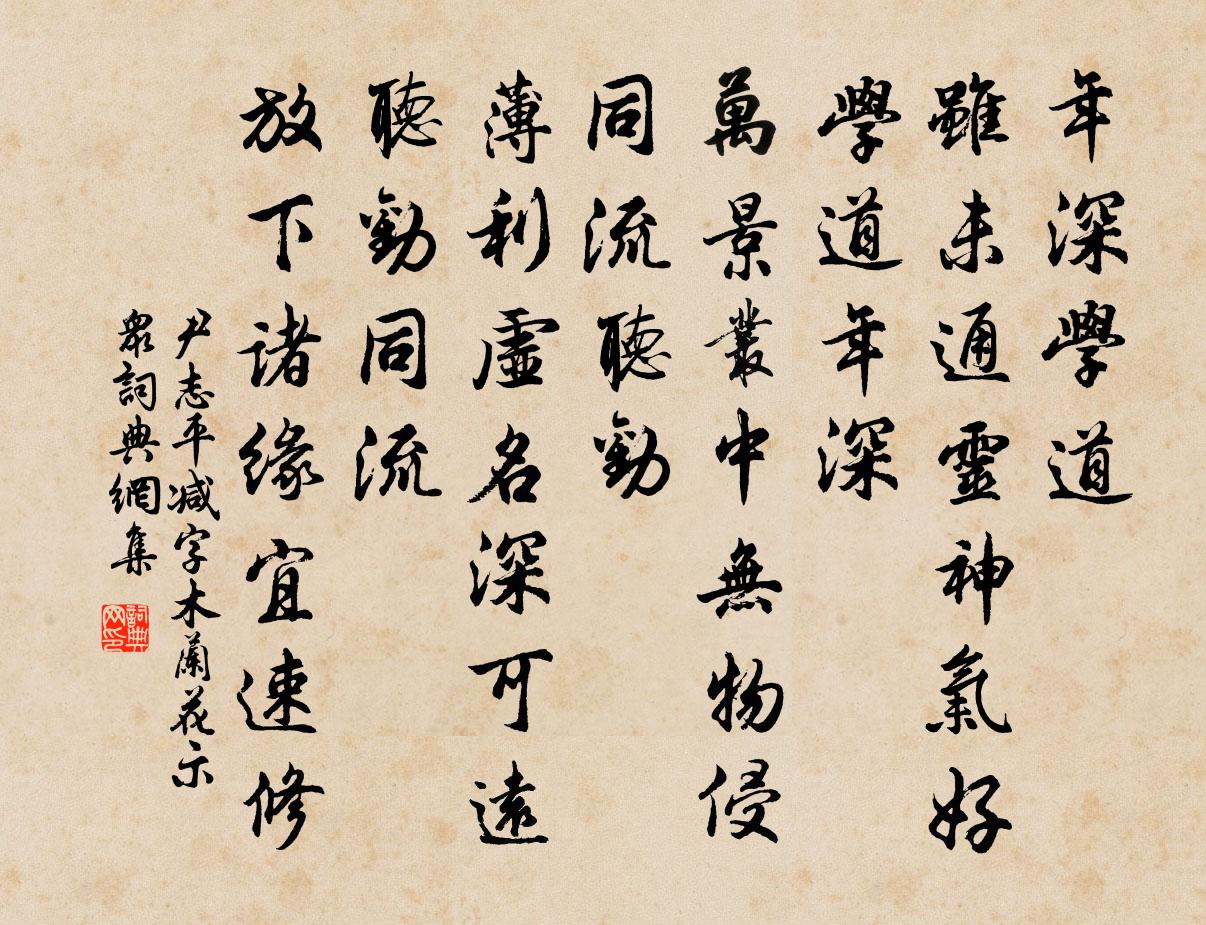 年深學道
雖未通靈神氣好
學道年深
萬景叢中無物侵
同流聽勸
薄利虛名深可遠
聽勸同流
放下诸緣宜速修
尹志平减字木蘭花示
眾詞典網集
詞典
网印